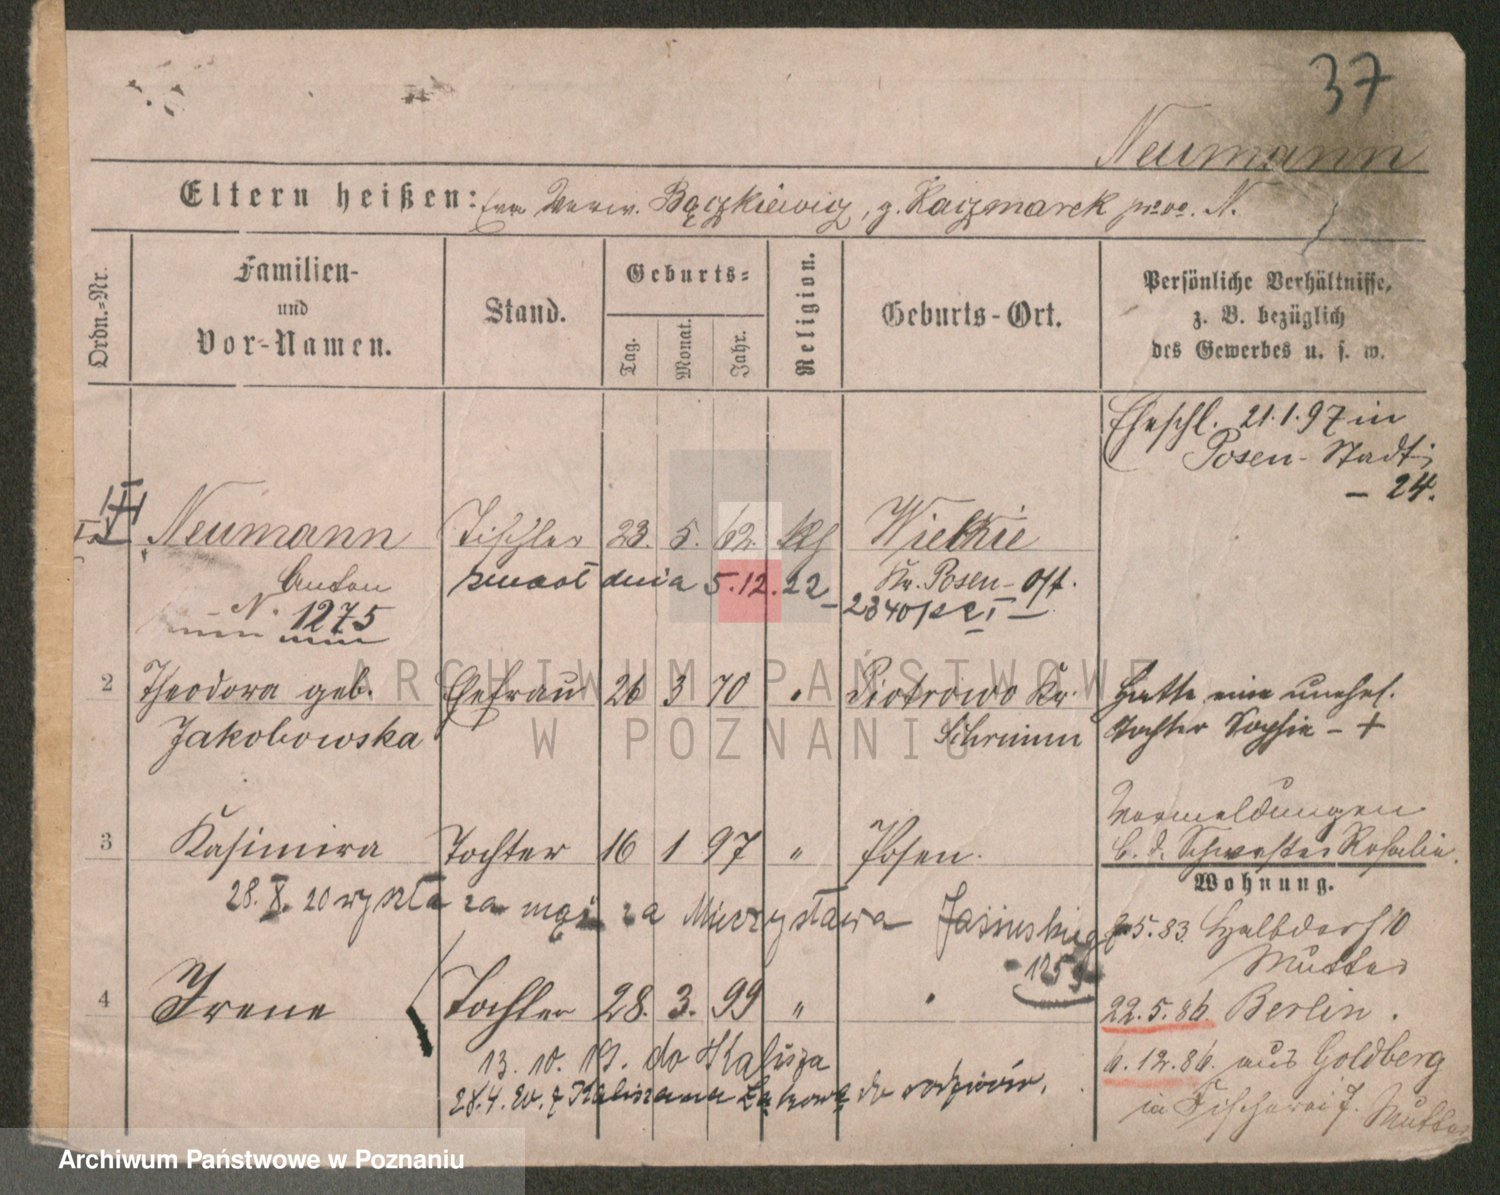 37
Neumann
Eltern heißen: Bączkiewicz, g. Kaczmarek prvo. N.
Ordn.-Nr.
Familien-
und
Vor-Namen.
Stand.
Geburts-
Tag.
Monat.
Jahr.
Religion.
Geburts-Ort.
Persönliche Verhältnisse,
z. B. bezüglich
des Gewerbes u. s. w.
Eheschl. 21.1.97 in
Posen-Stadt;
– 24.
Neumann Tischler 23. 5. 62. Wielkie
Anton
zmarł dnia 5.12.22 Kr. Posen-Ost.
N. 1275
2 Theodora geb. Ehefrau 26 3 70 " Piotrowo Kr. Hatte eine unehel.
Jakobowska Schrimm Tochter Sophie – +
Vormeldungen
3 Kasimira Tochter 16 1 97 " Posen. b. d. Schwester Rosalie.
Wohnung.
28. X. 20 wyszła za mąż za Mieczysława
5.83. Halbdorf 10
Mutter
4 Irene Tochter 28. 3. 99 " "
22.5.86. Berlin.
13. 10. 19. do Kalisza
6.12.86. aus Goldberg
28.4.20. z Kalisza do rodziców.
in Fischerei 7. Mutter
ARCHIWUM PAŃSTWOWE
W POZNANIU
Archiwum Państwowe w Poznaniu